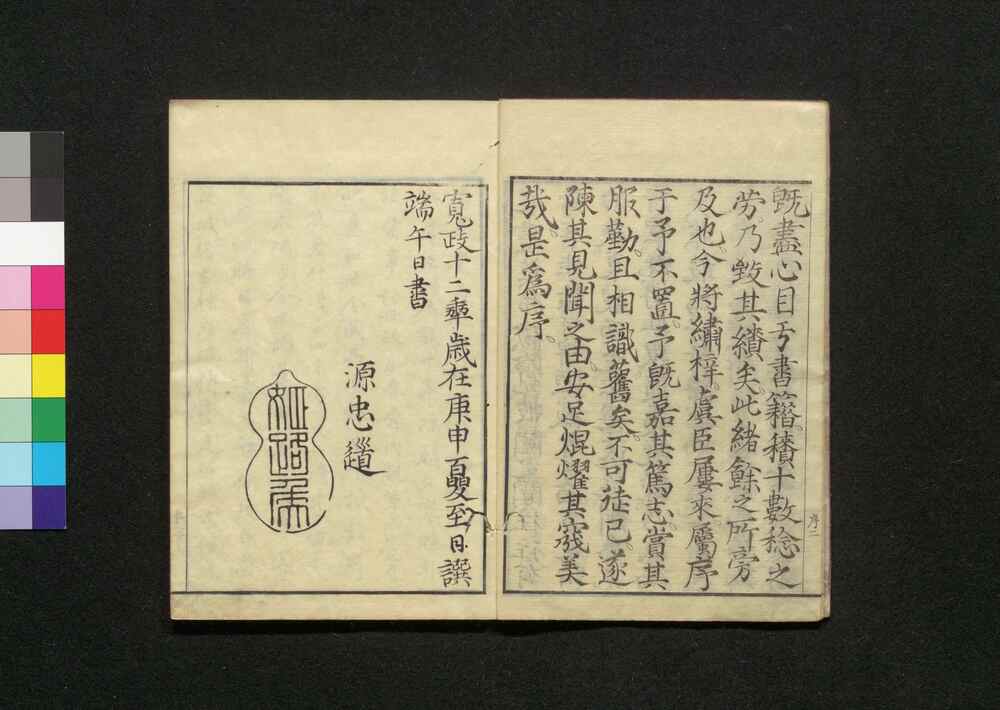 既盡心目于書籍積十數稔之
労。乃致其績矣。此緒餘之所旁
及也。今將繡梓。虞臣屢來屬序
于予不置。予既嘉其篤志。賞其
服勤。且相識舊矣。不可徒已。遂
陳其見聞之由。安足焜燿其美
哉。是爲序。
寛政十二年歳在庚申夏至日譔
端午日書
源忠道
序二